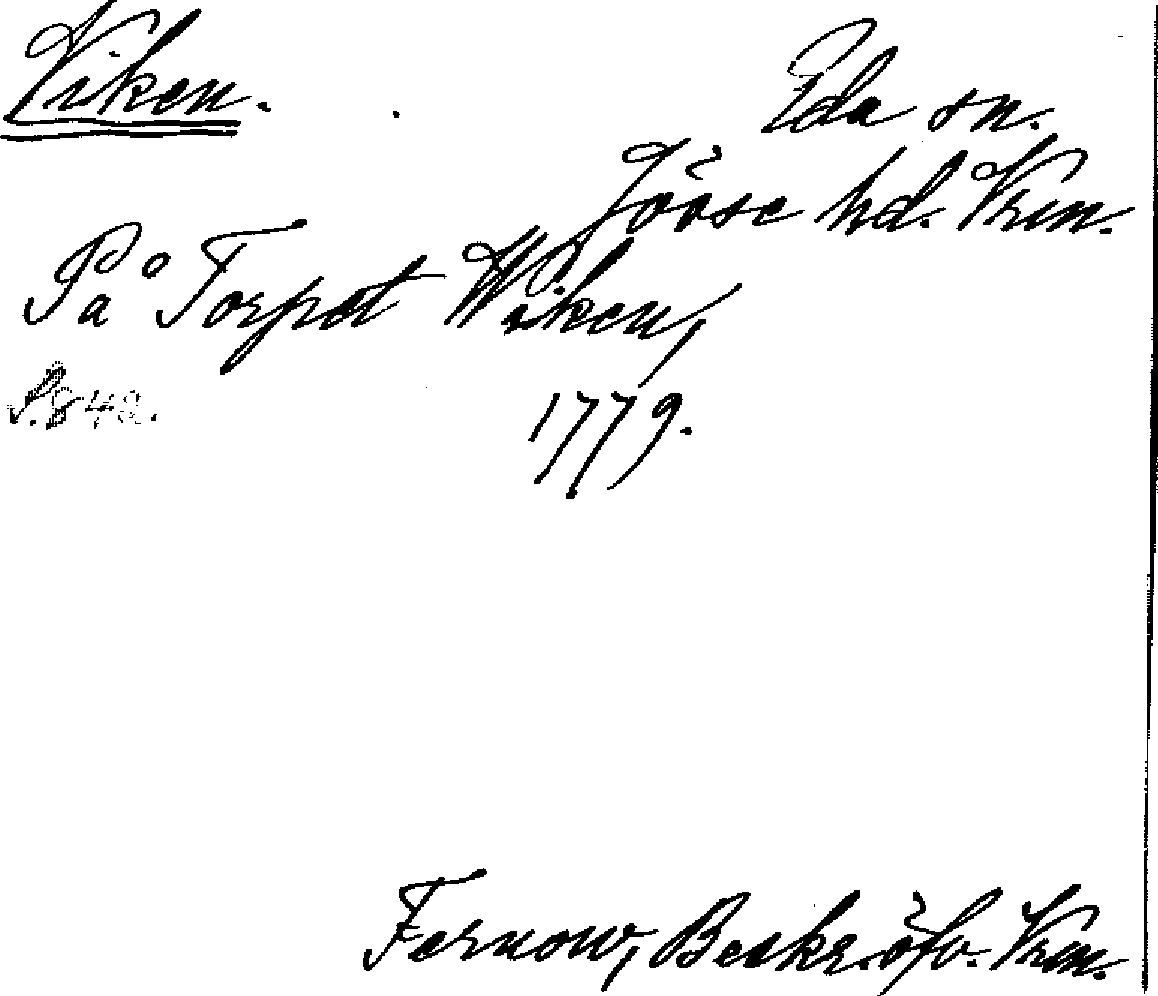 Viken.
Eda sn.
Jösse hd. Vrm.
På Torpet Wiken,
S. 842.
1779.
Fernow, Beskr. öfv. Vrm.